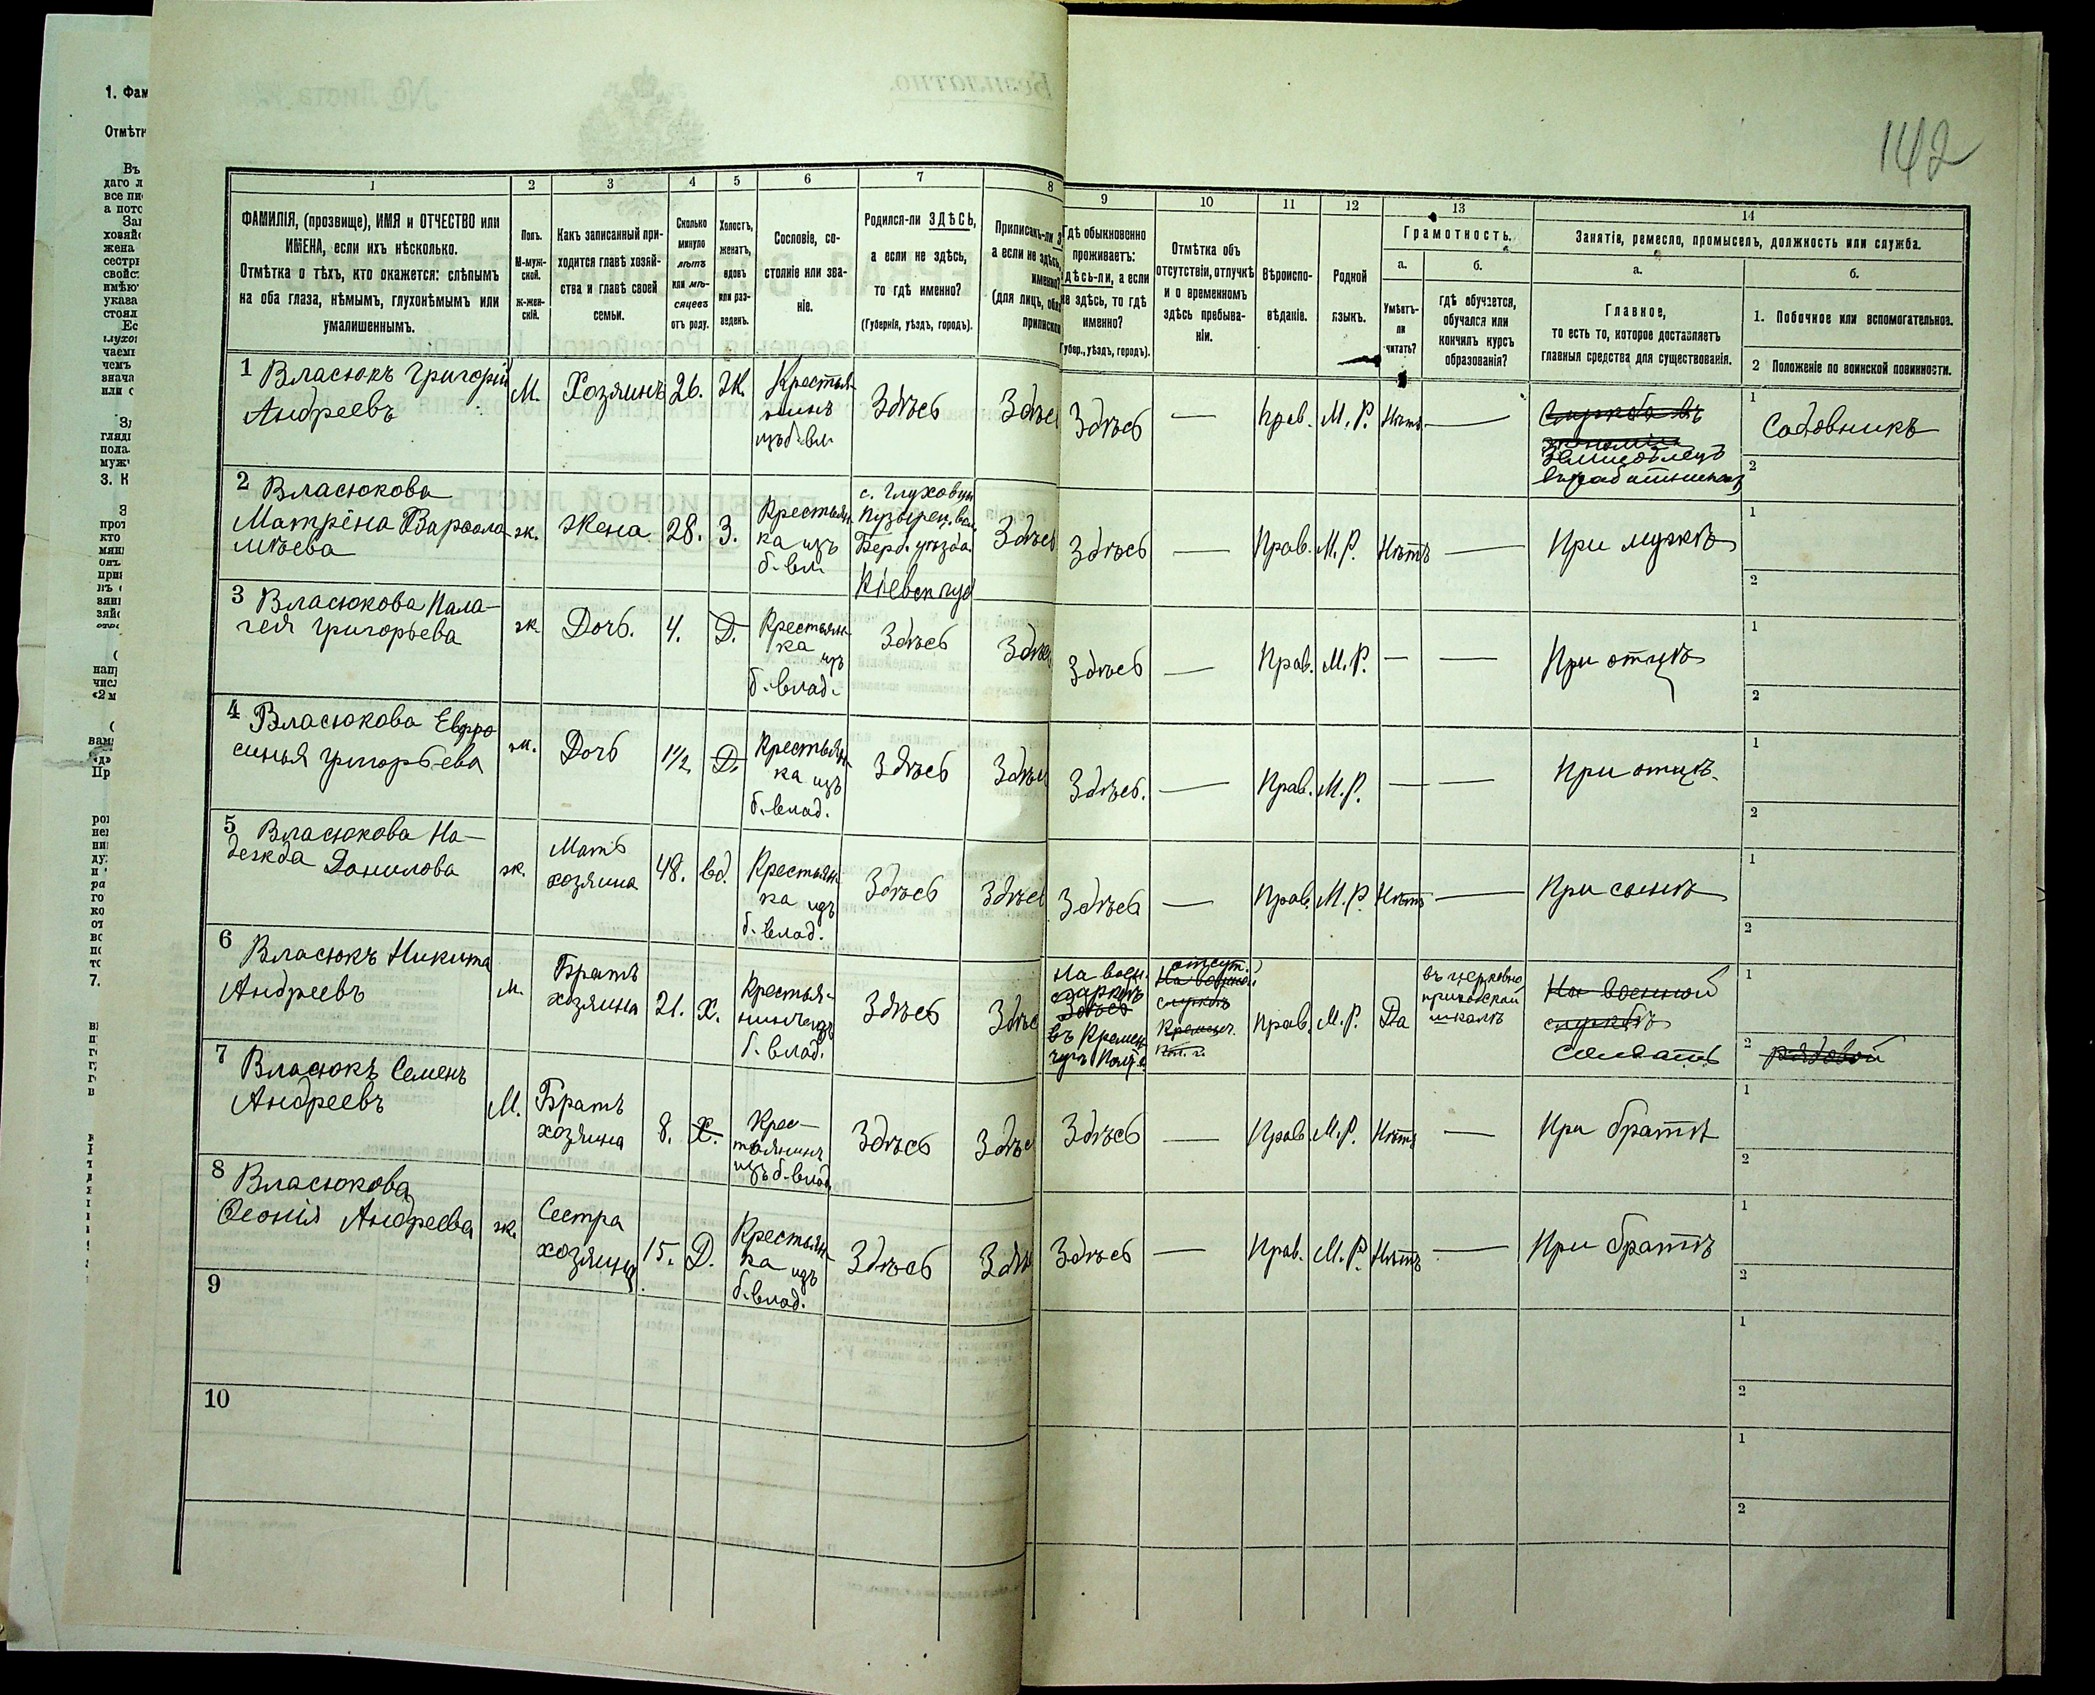 142
1
2
3
4
5
6
7
8
9
10
11
12
13
14
ФАМИЛІЯ, (прозвище), ИМЯ и ОТЧЕСТВО или
ИМЕНА, если ихъ нѣсколько.
Отмѣтка о тѣхъ, кто окажется: слѣпымъ
на оба глаза, нѣмымъ, глухонѣмымъ или
умалишеннымъ.
Полъ.
М-муж-
ской.
ж-жен-
скій.
Какъ записанный при-
ходится главѣ хозяй-
ства и главѣ своей
семьи.
Сколько
минуло
лѣтъ
или мѣ-
сяцевъ
отъ роду.
Холостъ,
женатъ,
вдовъ
или раз-
веденъ.
Сословіе, со-
стояніе или зва-
ніе.
Родился-ли ЗДѢСЬ,
а если не здѣсь,
то гдѣ именно?
(Губернія, уѣздъ, городъ).
Приписанъ-ли
а если не здѣсь,
именно?
(для лицъ,
Гдѣ обыкновенно
проживаетъ:
здѣсь-ли, а если
не здѣсь, то гдѣ
именно?
(Губер., уѣздъ, городъ).
Отмѣтка объ
отсутствіи, отлучкѣ
и о временномъ
здѣсь пребыва-
ніи.
Вѣроиспо-
вѣданіе.
Родной
языкъ.
Грамотность.
а.
Умѣетъ-
ли
читать?
б.
гдѣ обучается,
обучался или
кончилъ курсъ
образованія?
Занятіе, ремесло, промыселъ, должность или служба.
а.
Главное,
то есть то, которое доставляетъ
главныя средства для существованія.
б.
1. Побочное или вспомогательное.
2 Положеніе по воинской повинности.
1 Власюкъ Григорій
Андреевъ
М.
Хозяинъ
26.
Ж.
Крестья-
нинъ
изъ б. вл.
Здѣсь
Здѣсь
Здѣсь
—
Прав.
М. Р.
Нѣтъ
—
Служба въ
экономіи
Земледѣлецъ
1
Садовникъ
2
2 Власюкова
Матрёна Варфоло
мѣева
ж.
Жена
28.
З.
Крестьян-
ка изъ
б. вл.
с. Глуховцы
Пузырец. вол.
Берд. уѣзда
Кіевск губ
Здѣсь
Здѣсь
—
Прав.
М. Р.
Нѣтъ
—
При мужѣ
1
2
3 Власюкова Пала-
гея Григорьева
ж
Дочь.
4.
Д.
Крестьян-
ка изъ
б. влад.
Здѣсь
Здѣсь
Здѣсь
—
Прав.
М. Р.
—
—
При отцѣ
1
2
4 Власюкова Евфро
синья Григорьева
ж.
Дочь
1½
Д.
Крестьян-
ка изъ
б. влад.
Здѣсь
Здѣсь
Здѣсь.
—
Прав.
М. Р.
—
—
При отцѣ.
1
2
5 Власюкова На-
дежда Данилова
ж.
Мать
хозяина
48.
вд.
Крестьян-
ка изъ
б. влад.
Здѣсь
Здѣсь
Здѣсь
—
Прав.
М. Р.
Нѣтъ
—
При сынѣ
1
2
6 Власюкъ Никита
Андреевъ
м.
Братъ
хозяина
21.
Х.
Крестья-
нинъ изъ
б. влад.
Здѣсь
Здѣсь
На воен.
службѣ
Здѣсь
въ Кремен-
чугѣ Полт. г.
отсут.
На военной
службѣ
Кременч.
Пол. г.
Прав.
М. Р.
Да
въ церковно
приходской
школѣ
На военной
службѣ
Солдатъ
1
2
рядовой
7 Власюкъ Семенъ
Андреевъ
М.
Братъ
хозяина
8.
Х.
Крес-
тьянинъ
изъ б. влад.
Здѣсь
Здѣсь
Здѣсь
—
Прав
М. Р.
Нѣтъ
—
При братѣ
1
2
8 Власюкова
Ѳеонія Андреева
ж.
Сестра
хозяина
15.
Д.
Крестьян-
ка изъ
б. влад.
Здѣсь
Здѣсь
Здѣсь
—
Прав.
М. Р.
Нѣтъ
—
При братѣ
1
2
9
1
2
10
1
2